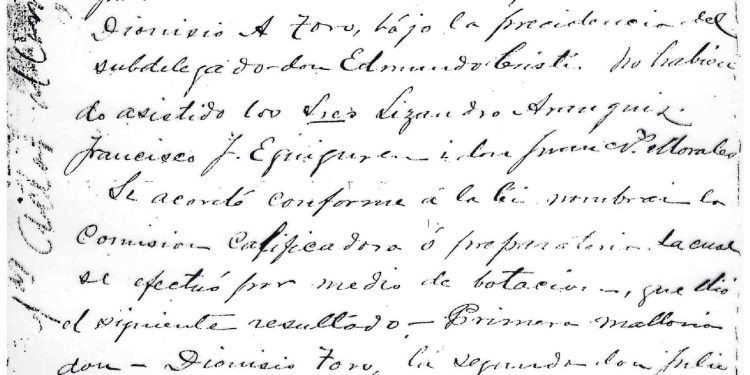 Dionisio A Toro, bajo la precidencia del
subdelegado don Edmundo Cristi. No habien
do asistido los Sres Lizandro Aranguiz.
Francisco J. Eguiguren i don Juan Morales
Se acordó conforme á la lei nombrar la
Comision Calificadora ó preparatoria la cual
se efectuó por medio de botacion, que dió
el siguiente resultado – Primera malloria
don – Dionisio Toro, la segunda don Julio